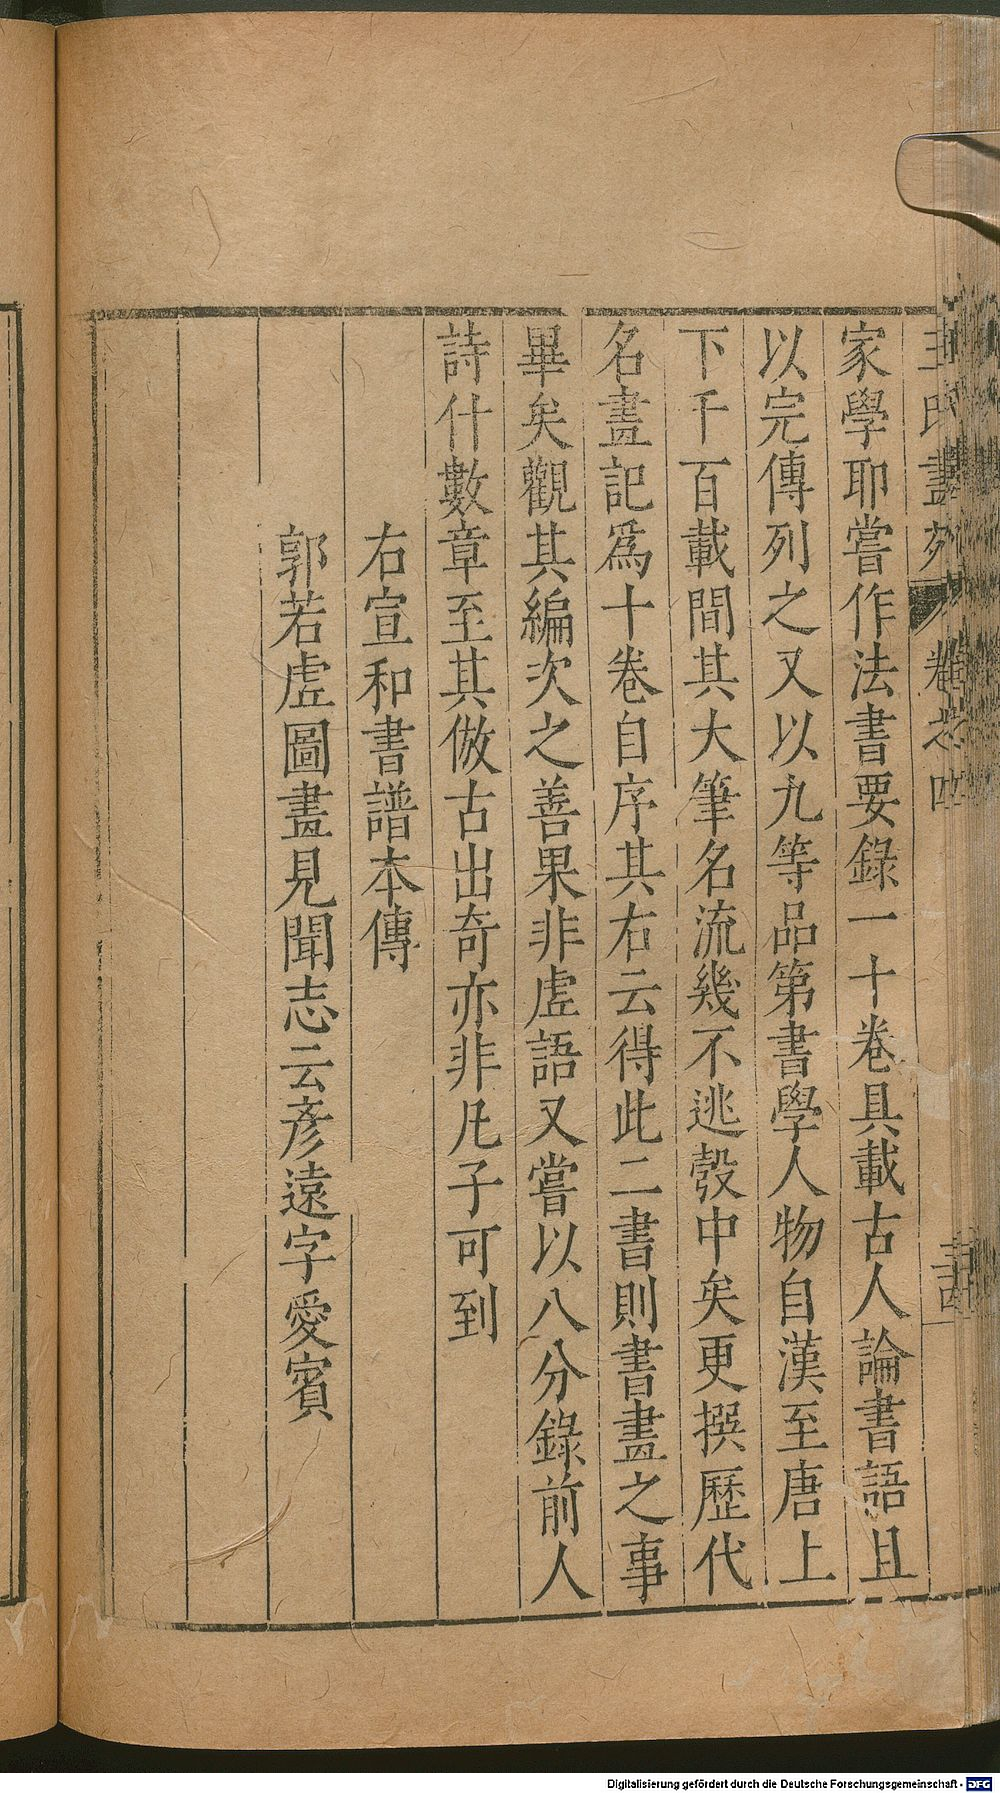 家學耶嘗作法書要錄一十卷具載古人論書語且
以完傳列之又以九等品第書學人物自漢至唐上
下千百載間其大筆名流幾不逃彀中矣更撰歷代
名畫記爲十卷自序其右云得此二書則書畫之事
畢矣觀其編次之善果非虛語又嘗以八分錄前人
詩什數章至其倣古出奇亦非凡子可到
右宣和書譜本傳
郭若虛圖畫見聞志云彥遠字愛賓
Digitalisierung gefördert durch die Deutsche Forschungsgemeinschaft - DFG